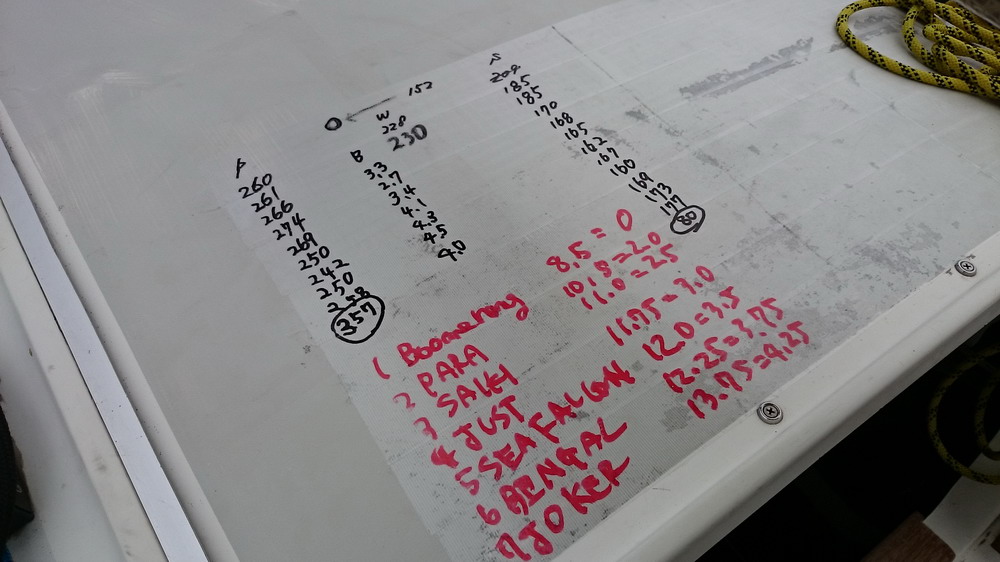 152
W
228
230
P
260
261
266
274
269
250
242
250
357
B
3.3
2.7
3.4
4.1
4.3
4.5
4.0
S
204
185
185
170
168
165
162
167
160
169
173
177
80
1 Boomerang
2 PARA
3
4 JUST
5 SEA FALCON
6 BENGAL
7 JOKER
8.5 = 0
10.5 = 2.0
11.0 = 25
11.75 = 3.0
12.0 = 3.5
12.25 = 3.75
13.75 = 4.25